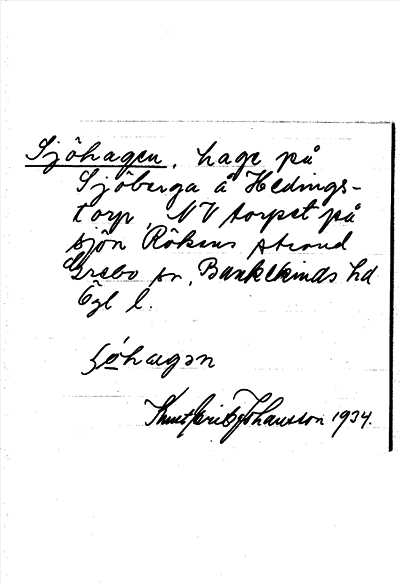 Sjöhagen, hage på
Sjöberga å Hedings-
torp, NV torpet på
sjön Rökens strand
Grebo sn, Bankekinds hd
Ögl l.
Johansson 1934.